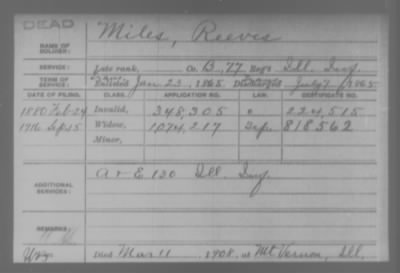 DEAD
NAME OF SOLDIER: Miles, Reeves
SERVICE: Late rank, Co. B, 77 Reg't Ill. Inf.
TERM OF SERVICE: Enlisted Jan 23, 1865. Discharged July 7, 1865
DATE OF FILING. CLASS. APPLICATION NO. LAW. CERTIFICATE NO.
1880 Feb 24 Invalid, 348,305 224,515
1916 Sept 5 Widow, 1,074,217 818562
Minor,
ADDITIONAL SERVICES: A & E 130 Ill. Inf.
REMARKS:
Died Mar 11 1908, at Mt Vernon, Ill.